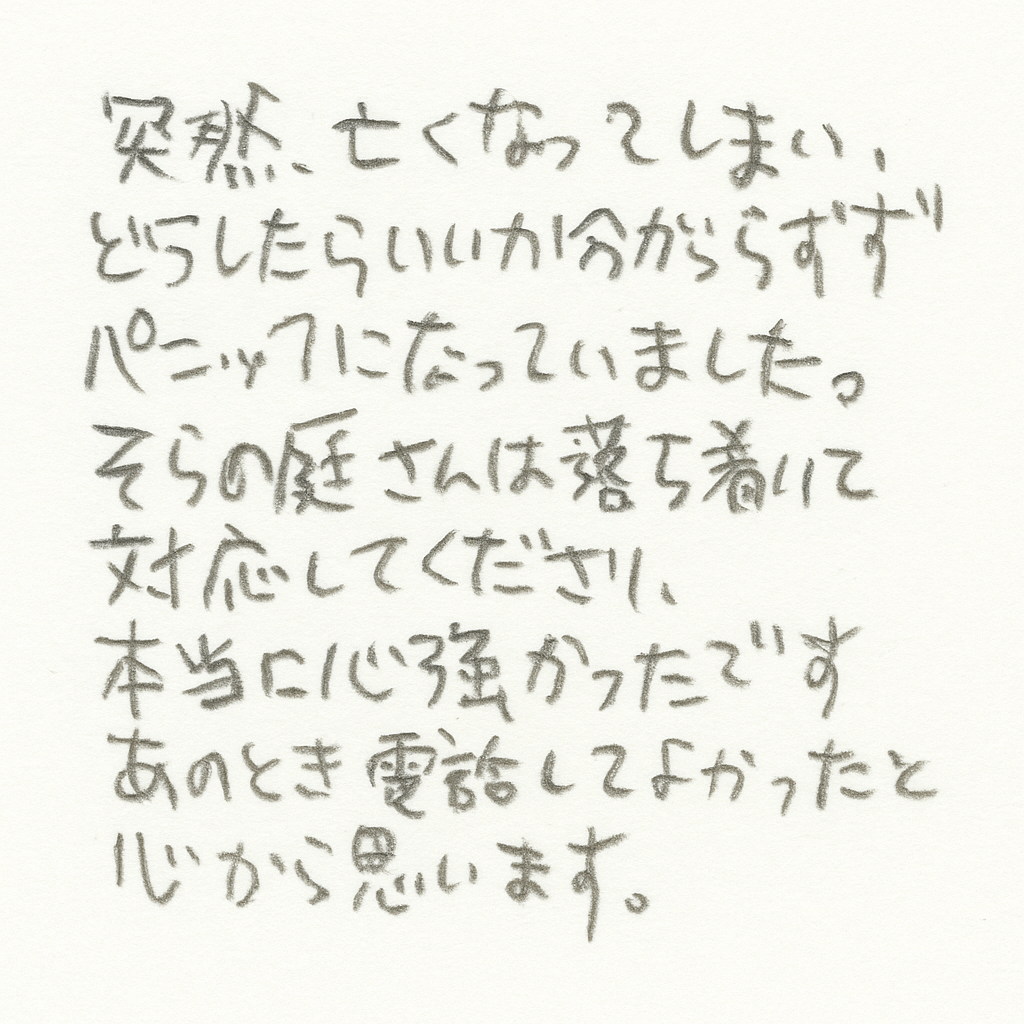 突然、亡くなってしまい、
どうしたらいいか分がららずず
パニックになっていました。
そらの庭さんは落ち着いて
対応してくださり、
本当に心強かったです
あのとき電話してよかったと
心から思います。